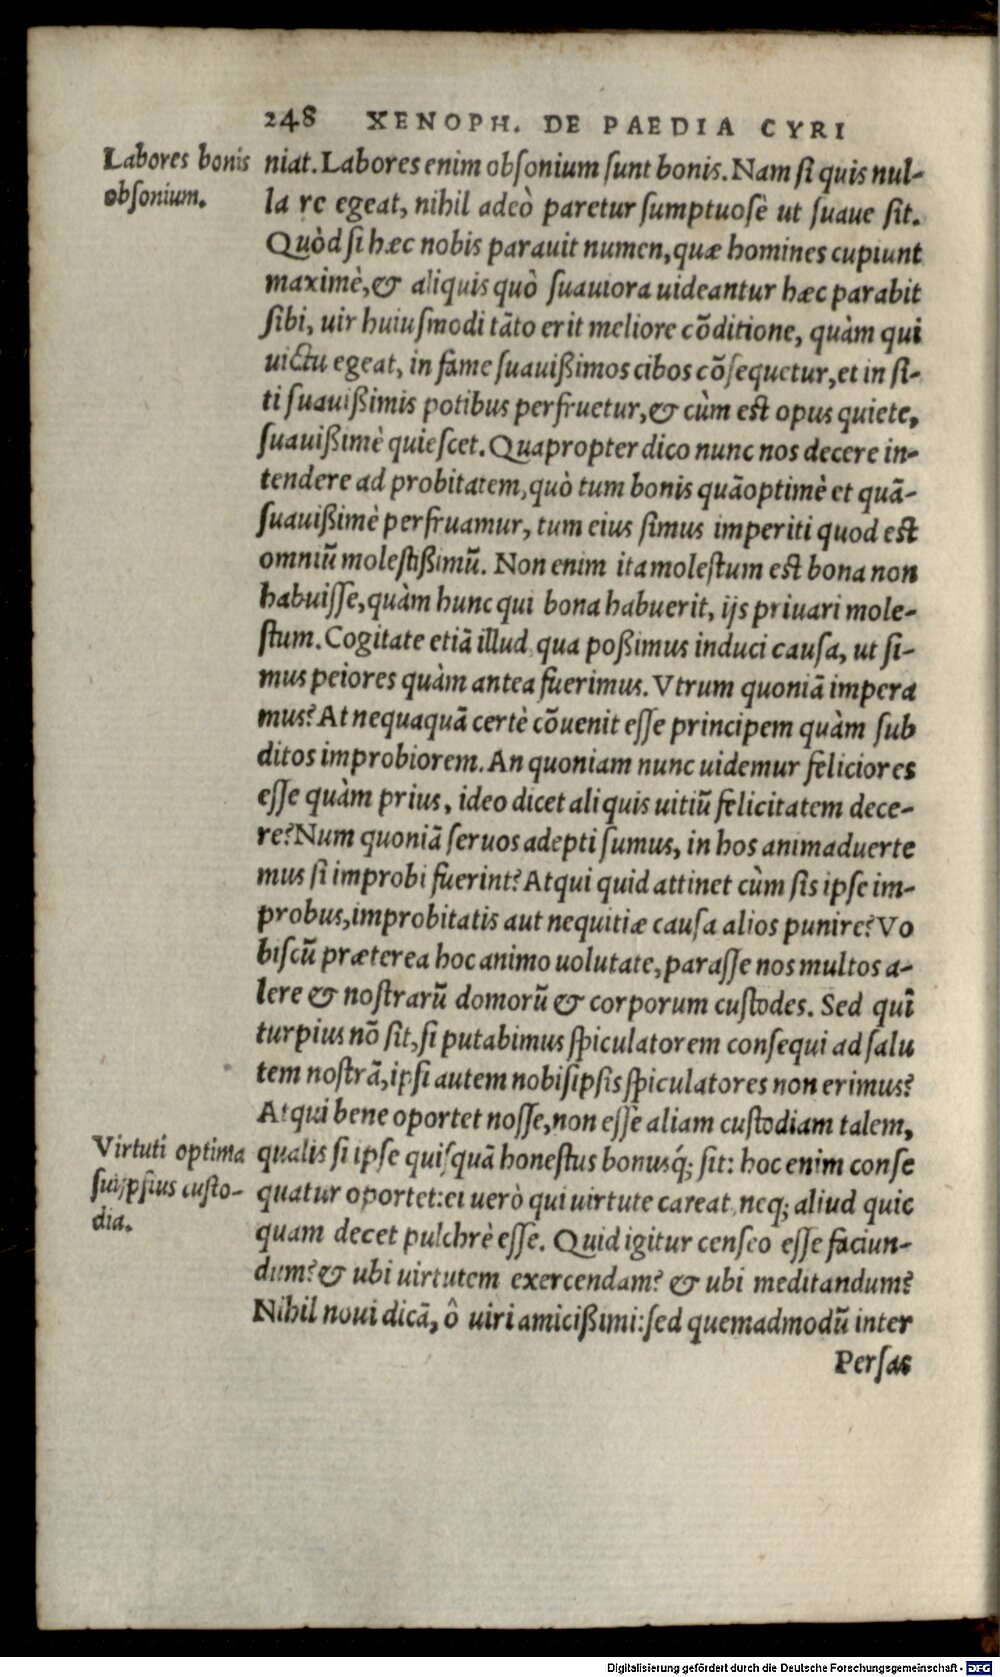 248 XENOPH. DE PAEDIA CYRI
Labores bonis
obſonium.
niat. Labores enim obſonium ſunt bonis. Nam ſi quis nul-
la re egeat, nihil adeò paretur ſumptuoſè ut ſuaue ſit.
Quòd ſi hæc nobis parauit numen, quæ homines cupiunt
maximè, & aliquis quò ſuauiora uideantur hæc parabit
ſibi, uir huiuſmodi tāto erit meliore cōditione, quàm qui
uictu egeat, in fame ſuauißimos cibos cōſequetur, et in ſi-
ti ſuauißimis potibus perfruetur, & cùm est opus quiete,
ſuauißimè quieſcet. Quapropter dico nunc nos decere in-
tendere ad probitatem, quò tum bonis quāoptimè et quā-
ſuauißimè perfruamur, tum eius ſimus imperiti quod est
omniū moleſtißimū. Non enim ita moleſtum est bona non
habuiſſe, quàm hunc qui bona habuerit, ijs priuari mole-
ſtum. Cogitate etiā illud qua poßimus induci cauſa, ut ſi-
mus peiores quàm antea fuerimus. Vtrum quoniā impera
mus? At nequaquā certè cōuenit eſſe principem quàm ſub
ditos improbiorem. An quoniam nunc uidemur feliciores
eſſe quàm prius, ideo dicet aliquis uitiū felicitatem dece-
re? Num quoniā ſeruos adepti ſumus, in hos animaduerte
mus ſi improbi fuerint? Atqui quid attinet cùm ſis ipſe im-
probus, improbitatis aut nequitiæ cauſa alios punire? Vo
biſcū præterea hoc animo uolutate, paraſſe nos multos a-
lere & noſtrarū domorū & corporum cuſtodes. Sed quî
turpius nō ſit, ſi putabimus ſpiculatorem conſequi ad ſalu
tem noſtrā, ipſi autem nobiſipſis ſpiculatores non erimus?
Atqui bene oportet noſſe, non eſſe aliam cuſtodiam talem,
Virtuti optima
ſuijpſius cuſto-
dia.
qualis ſi ipſe quiſquā honeſtus bonusq́; ſit: hoc enim conſe
quatur oportet: ei uerò qui uirtute careat, neq; aliud quic
quam decet pulchrè eſſe. Quid igitur cenſeo eſſe faciun-
dum? & ubi uirtutem exercendam? & ubi meditandum?
Nihil noui dicā, ô uiri amicißimi: ſed quemadmodū inter
Perſas
Digitalisierung gefördert durch die Deutsche Forschungsgemeinschaft - DFG